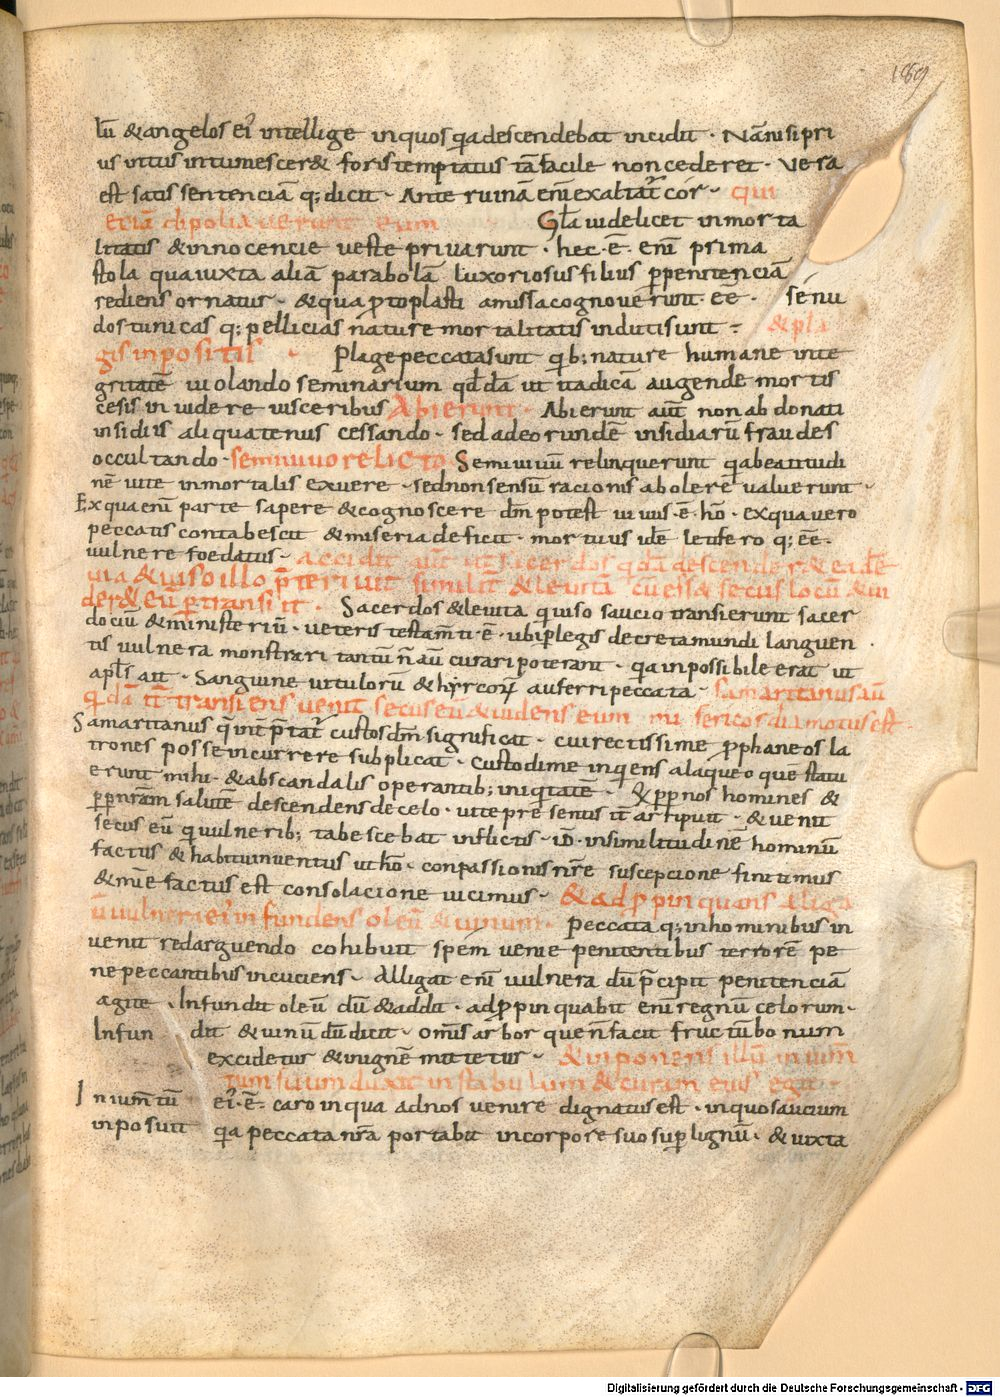 189
lū &angelos ei' intellige inquos q̄a descendebat incidit · Nā nisi pri
us intus intumescer& foris temptatus tā facile non cederet · Vera
est satis sentenciā q; dicit · Ante ruinā em̄ exaltat̄ cor · qui
etiā dispoliaverunt eum Gl̄a videlicet inmorta
litatis &innocencie veste privarunt · hec · ē · em̄ prima
stola qua iuxta aliā parabolā luxoriosus filius p penitenciā
rediens ornatus · &qua ptoplasti amissa cognoverunt · eē · se nu
dos tunicas q; pellicias nature mortalitatis induti sunt · & pla
gis inpositis · Plage peccata sunt qb; nature humane inte
gritatē violando seminarium qd̄dā ut ita dicā augende mortis
cesis invidere visceribus Abierunt · Abierunt aut̄ non abdonati
insidiis aliquatenus cessando · sed adeorundē insidiarū fraudes
occultando · semivivo relicto Semivivū relinquerunt q̄a beatitudi
nē vite inmortalis exuere · sed non sensū racionis abolere valuerunt ·
Ex qua em̄ parte sapere &cognoscere dm̄ potest vivus · ē · hō · ex qua vero
peccatis contabescit &miseria deficit · mortuus id̄e letifero q; eē ·
vulnere foedatus · accidit aut̄ ut sacerdos qdā descender& eadē
via &viso illo p̄terivit similit̄ &levita cū ess& secus locū &vi
der& eū ptransiit · Sacerdos &levita qui so saucio transierunt sacer
dociū &ministeriū · veteris testam̄ti · ē · ubi plegis decreta mundi languen
tis vulnera monstrari tantū n̄ aū curari poterant · q̄a inpossibile erat ut
apl̄s ait · Sanguine vitulorū &hyrcorū auferri peccata · Samaritanus aū
qdā it̄ transiens venit secus eū &videns eum misericordia motus est
Samaritanus q̄ int̄p̄tat̄ custos dm̄ significat · cui rectissime pphane os la
trones posse incurrere subplicat · Custodi me inquiens a laqueo quē statu
erunt mihi · &ab scandalis operantib; iniqtatē · Q pp nos homines &
pp nr̄am salutē descendens de celo · vite presentis it̄ arripuit · &venit
secus eū q vulnerib; tabescebat inflictis · id · in similitudinē hominū
factus &habitu inventus ut hō · conpassionis nr̄e suscepcione finitimus
&mīe factus est consolacione vicinus · &adppinquans alliga
v̄ vulnera ei' infundens oleū &vinum · Peccata q; in hominibus in
venit redarguendo cohibuit spēm venie penitentibus terrorē pe
ne peccantibus incuciens · Alligat em̄ vulnera dū p̄cipit penitenciā
agite · Infundit oleū dū &addit · adppinquabit em̄ regnū celorum ·
Infun dit &vinū dū dicit · Om̄is arbor que n̄ facit fructū bonum
excidetur &in ignē mittetur · &inponens illū in ium̄
tum suum duxit in stabulum &curam eius egit
In ium̄tū ei' · ē · caro in qua ad nos venire dignatus est · in quo saucium
inposuit q̄a peccata nr̄a portabit in corpore suo sup lignū · &iuxta
Digitalisierung gefördert durch die Deutsche Forschungsgemeinschaft - DFG